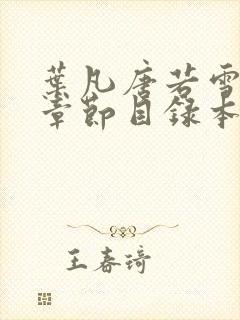 葉凡唐若雪
章節目錄本
王春琦